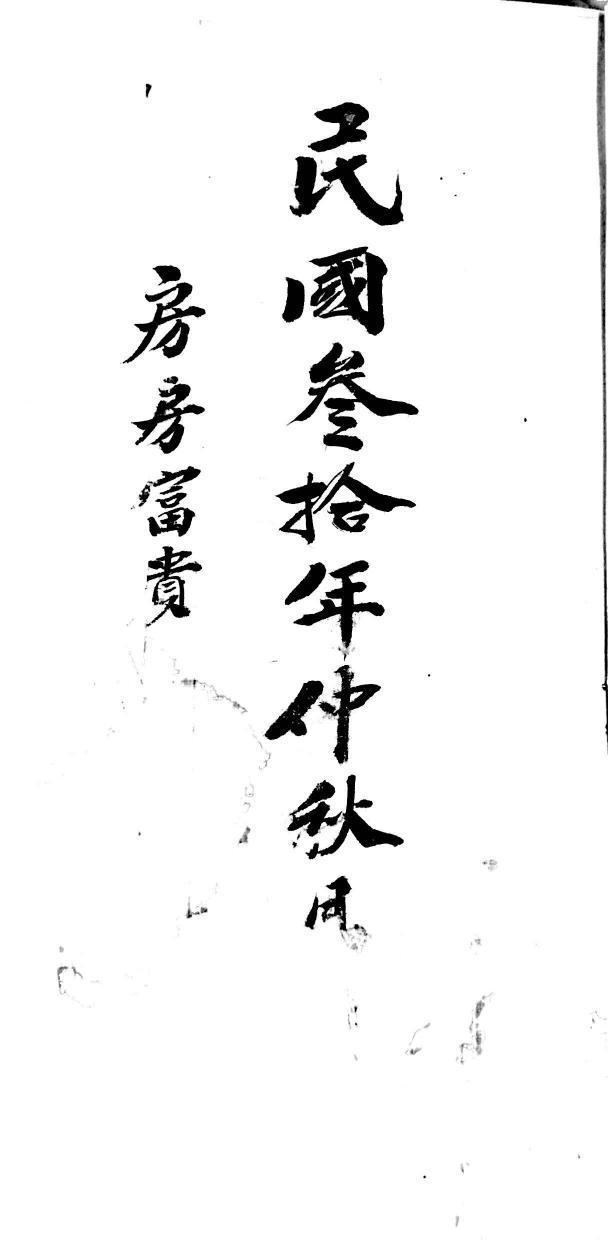 民國叄拾年仲秋月
房房富貴